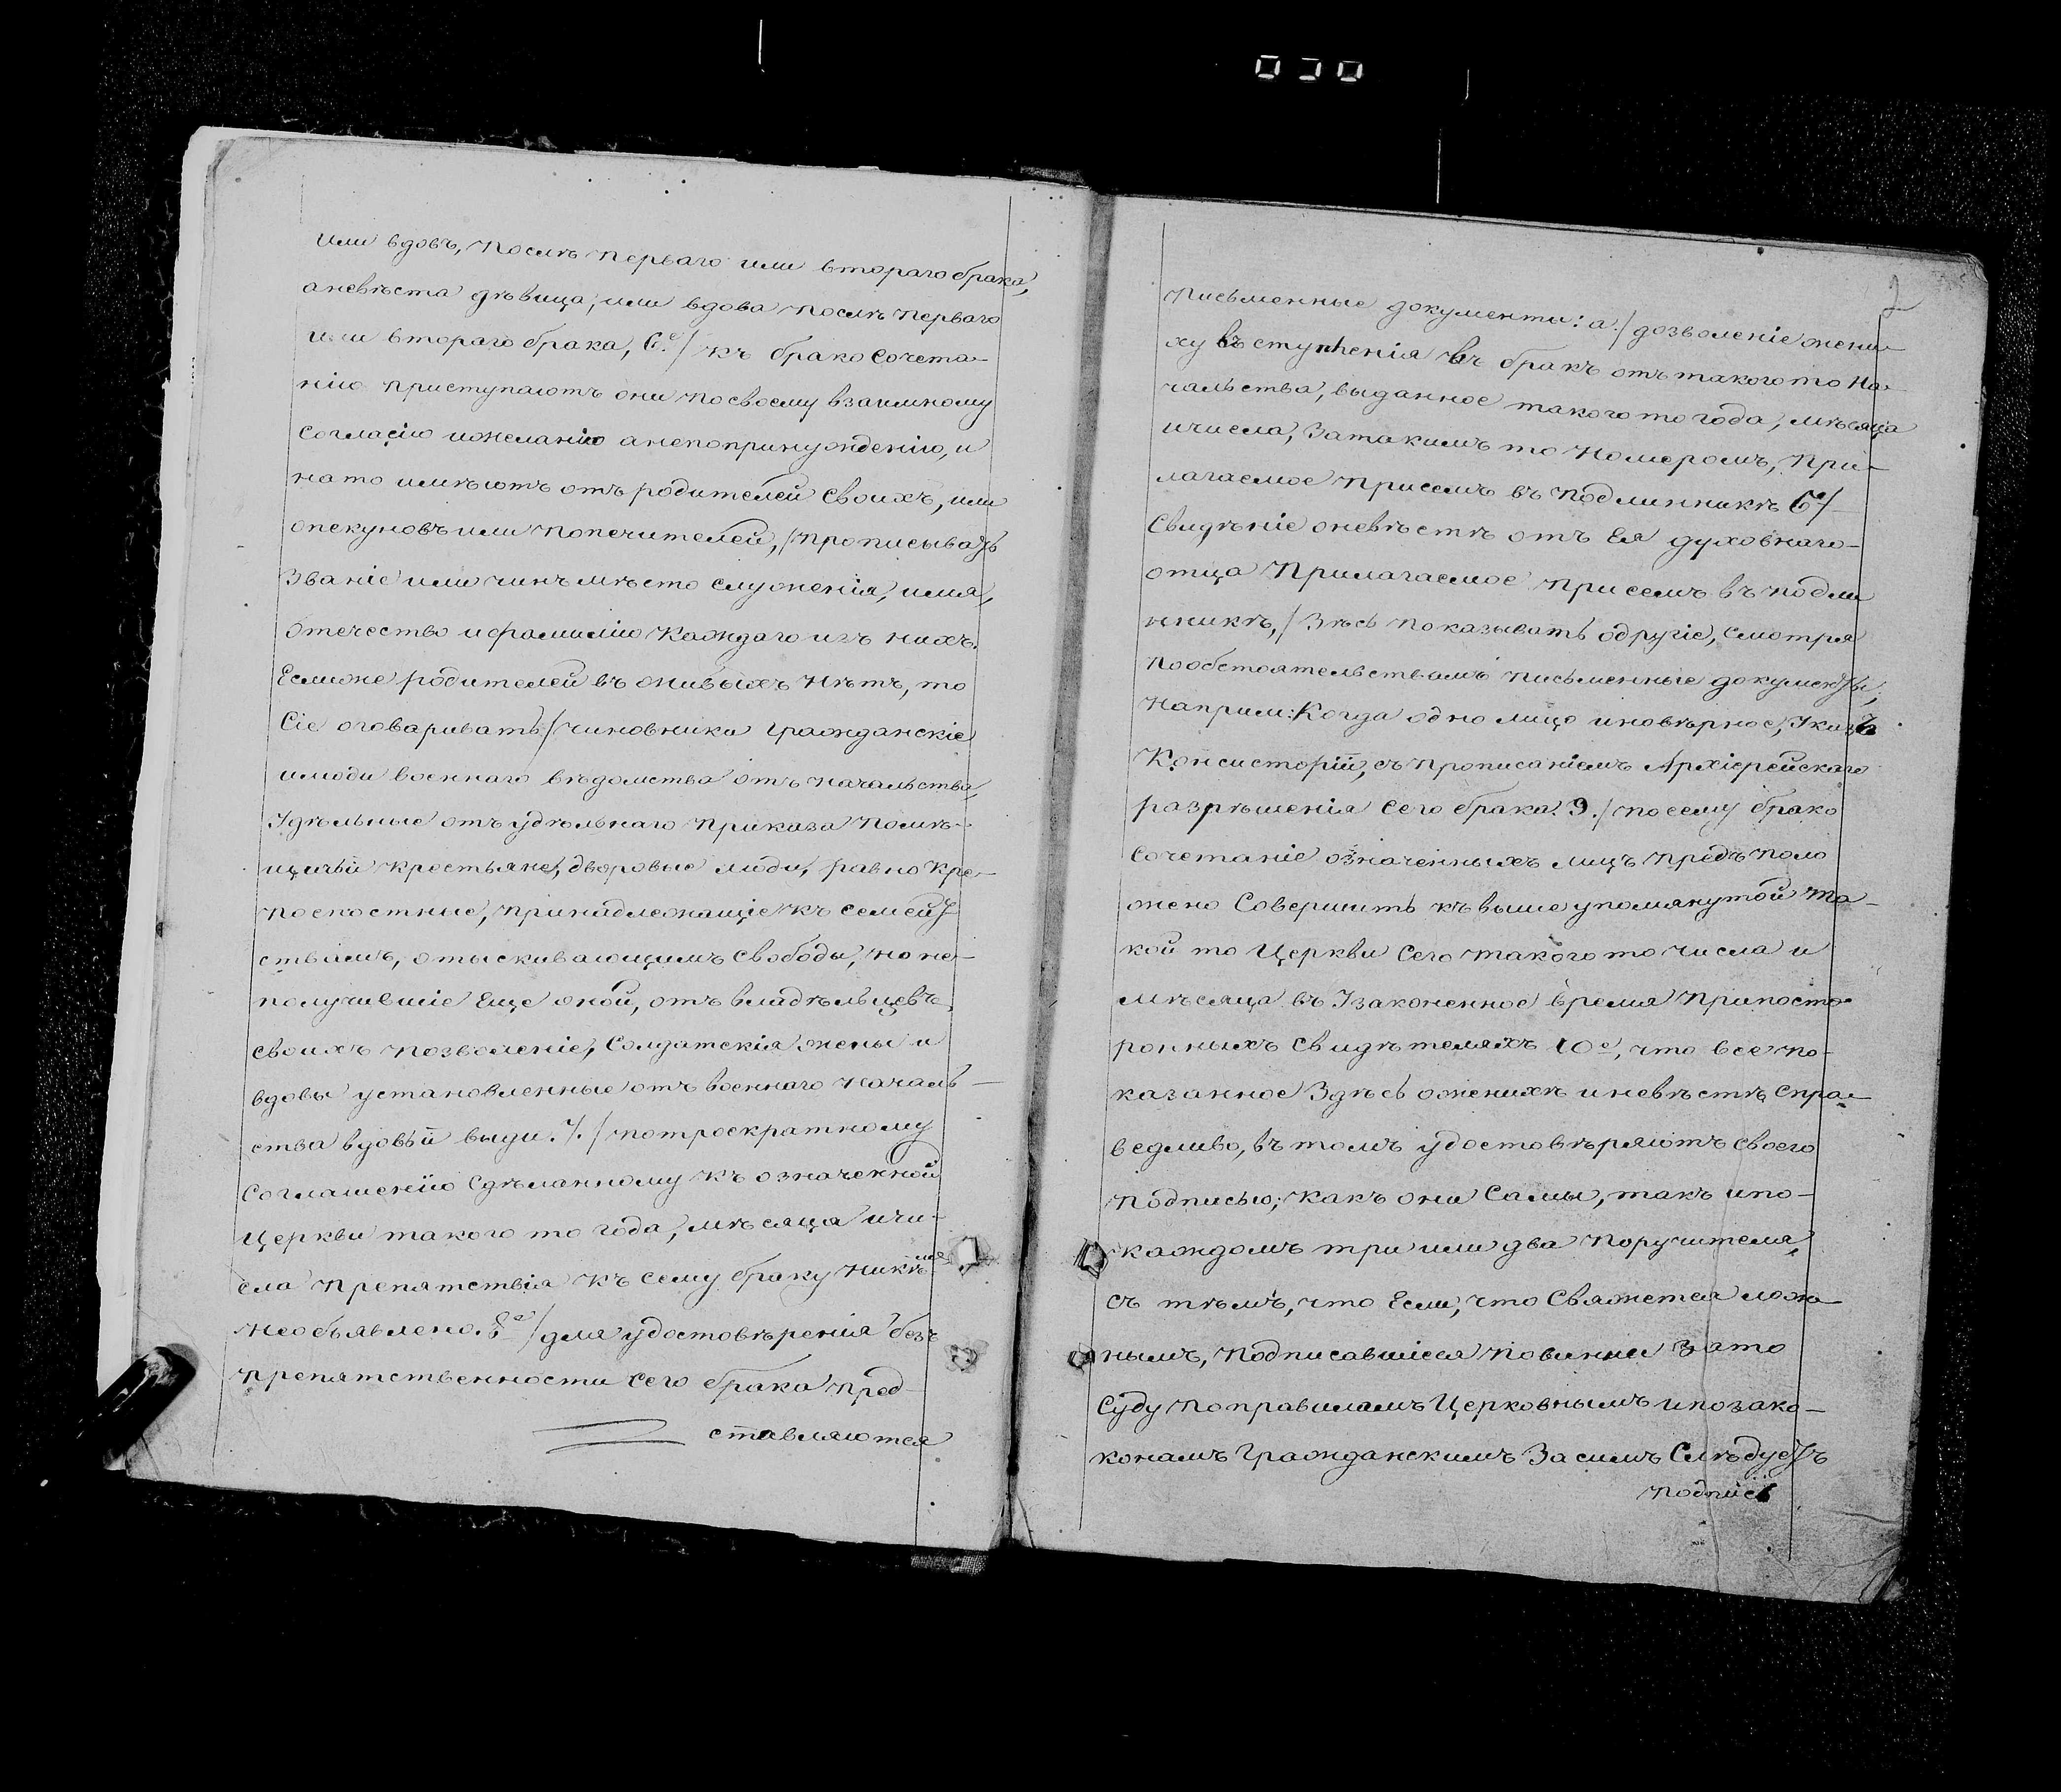 или вдовъ, послѣ перваго или втораго брака,
аневѣста дѣвица, или вдова послѣ перваго
или втораго брака, 6.е/ къ брако сочета-
нію приступаютъ они посвоему взаимному
согласію ижеланію анепопринужденію, и
на то имѣютъ отъ родителей своихъ, или
опекуновъ или попечителей, /прописывать
Званіе или чинъ мѣсто служенія, имя,
отечество ифамилію каждаго изъ нихъ.
Еслиже родителей въ живыхъ нѣтъ, то
Сіе оговаривать/ чиновники гражданскіе
илюди военнаго вѣдомства отъ начальства,
Удѣльные отъ удѣльнаго приказа помѣ-
щичьи крестьяне, дворовые люди, равно кре-
постные, принадлежащіе къ семей-
ствамъ, отыскивающимъ свободы, но не-
получившіе Еще оной, отъ владѣльцевъ,
своихъ позволеніе, Солдатскія жены и
вдовы установленные отъ военнаго началь-
ства вдовьи виды. 7./ потроекратному
Соглашенію Сдѣланному къ означенной
Церкви такого то года, мѣсяца ичи-
сла препятствія къ сему браку никѣмъ
необъявлено. 8е/ для удостовѣренія безъ
препятственности сего брака пред-
ставляются
2
письменные документы: а/ дозволеніе жени-
ху въступленія въ бракъ отъ такого то На-
чальства, выданное такого то года, мѣсяца
ичисла, Затакимъ то номеромъ, при-
лагаемое присемъ въ подлинникѣ б/
Свидѣніе оневѣстѣ отъ Ея духовнаго-
отца Прилагаемое присемъ въ подли
нникѣ, /Зѣсь показывать одругіе, смотря
пообстоятельствамъ письменные документы,
Наприм: Когда одно лицо иновѣрное, Указъ
Консисторіи, съ прописаніемъ Архіерейскаго
разрѣшенія сего брака. 9./ посему брако
сочетаніе означенныхъ лицъ предъполо
жено Совершить къвыше упомянутой та-
кой то Церкви Сего такого то числа и
мѣсяца въ Узаконенное время припосто-
ронныхъ Свидѣтеляхъ 10е, что все по-
казанное Здѣсь оженихѣ иневѣстѣ спра-
ведливо, въ томъ удостовѣряютъ своего
подписью, какъ они Самы, такъ ипо-
каждомъ три или два поручителя,
съ тѣмъ, что Если, что Свяжется лож-
нымъ, подписавшіеся повинни Зато
Суду поправиламъ Церковнымъ ипозако-
конамъ Гражданскимъ За симъ Слѣдуетъ
подписи